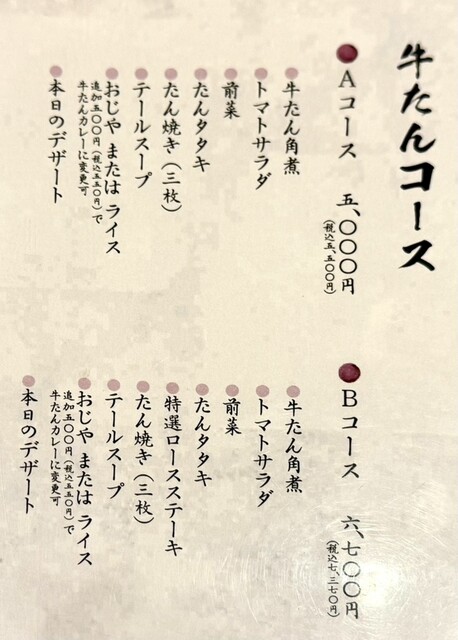 牛たんコース
Aコース 五、〇〇〇円
(税込五、五〇〇円)
牛たん角煮
トマトサラダ
前菜
たんタタキ
たん焼き(三枚)
テールスープ
おじや または ライス
追加五〇〇円(税込五五〇円)で
牛たんカレーに変更可
本日のデザート
Bコース 六、七〇〇円
(税込七、三七〇円)
牛たん角煮
トマトサラダ
前菜
たんタタキ
特選ロースステーキ
たん焼き(三枚)
テールスープ
おじや または ライス
追加五〇〇円(税込五五〇円)で
牛たんカレーに変更可
本日のデザート